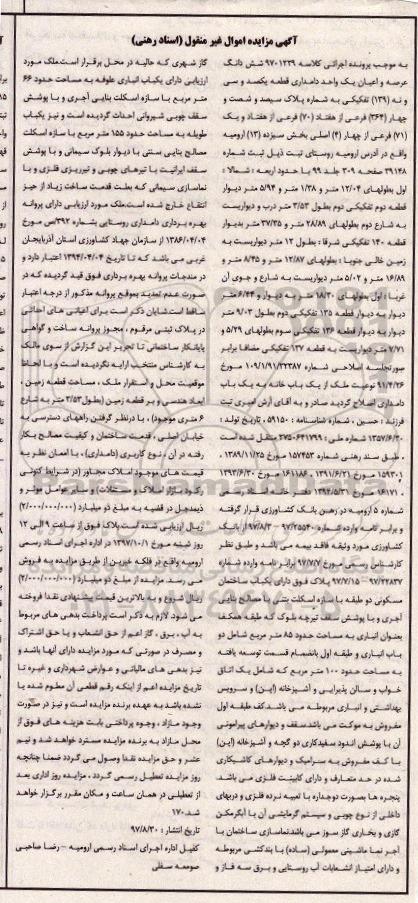 آگهی مزایده اموال غیر منقول (اسناد رهنی)
به موجب پرونده اجرائی کلاسه ۹۷۰۱۲۳۹ شش دانگ
عرصه و اعیان یک واحد دامداری قطعه یکصد و سی
و نه (۱۳۹) تفکیکی به شماره پلاک سیصد و شصت و
چهار (۳۶۴) فرعی از هفتاد (۷۰) فرعی از هفتاد و یک
(۷۱) فرعی از چهار (۴) اصلی بخش سیزده (۱۳) ارومیه
واقع در آدرس ارومیه روستای ثبت ذیل ثبت شماره
۳۹۱۴۸ صفحه ۳۰۹ جلد ۹۹ با حدود اربعه : شمالا :
اول بطولهای ۱۲/۰۴ متر و ۱/۳۸ متر و ۵/۹۴ متر دیوار
قطعه دوم تفکیکی دوم بطول ۳/۵۳ متر درب و دیواریست
به شارع دوم بطولهای ۲۸/۸۹ متر و ۳۷/۳۵ متر بدیوار
قطعه ۱۴۰ تفکیکی شرقا : بطول ۱۲ متر دیواریست به
زمین خالی جنوبا : بطولهای ۱۲/۸۷ متر و ۸/۴۵ متر و
۱۶/۸۹ متر و ۵/۰۲ متر دیواریست به شارع و جوی آن
غربا : اول بطولهای ۱۸/۳۰ متر به دیوار و ۶/۴۴ متر
دیوار به دیوار قطعه ۱۳۵ تفکیکی دوم بطول ۹/۰۳ متر
دیوار به دیوار قطعه ۱۳۶ تفکیکی سوم بطولهای ۵/۲۹ و
۷/۷۱ متر دیواریست به قطعه ۱۳۷ تفکیکی مضافا برابر
صورتجلسه اصلاحی شماره ۱۰۹/۱/۹۱/۳۲۳۸۷ مورخ
۹۱/۴/۲۶ نوعیت ملک از یک باب خانه به یک باب
دامداری اصلاح گردید صادر و به آقای آرش امیری ثبت
فرزند : حسین ، شماره شناسنامه : ۵۹۱۵۰ ، تاریخ تولد :
شماره ملی : ۲۷۵۰۶۴۱۷۹۹ منتقل شده است
، طبق سند رهنی شماره ۱۵۷۴۵۳ مورخ ۱۳۸۹/۱۱/۲۵ ،
۱۵۹۳۰۱ مورخ ۱۳۹۱/۶/۲۱ ، ۱۶۱۱۸۶ مورخ ۱۳۹۳/۶/۳۰
، ۱۶۱۷۱۰ مورخ ۱۳۹۲/۵/۳۱ دفترخانه اسناد رسمی
شماره ۵ ارومیه در رهن بانک کشاورزی قرار گرفته
و برابر نامه وارده شماره ۹۷/۲۵۵۴۰-۹۷/۸/۳ از بانک
کشاورزی مورد وثیقه فاقد بیمه می باشد و طبق نظر
کارشناس رسمی مورخ ۹۷/۷/۷ برابر نامه وارده شماره
۹۷/۲۲۸۳۷ - ۹۷/۷/۱۵ پلاک فوق دارای یکباب ساختمان
مسکونی دو طبقه با سازه اسکلت بتنی با مصالح بنایی
آجری و با پوشش سقف تیرچه بلوک که طبقه همکف
بعنوان انباری به مساحت حدود ۸۵ متر مربع شامل دو
باب انباری و طبقه اول بانضمام قسمت توسعه یافته
به مساحت حدود ۱۰۰ متر مربع که شامل یک اتاق
خواب و سالن پذیرایی و آشپزخانه (اپن) و سرویس
بهداشتی و انباری مربوطه می باشد کف طبقه اول
مفروش به موکت می باشد سقف و دیوارهای پیرامونی
آن با پوشش اندود سفیدکاری دو گچه و آشپزخانه (اپن)
با کف مفروش به سرامیک و دیوارهای کاشیکاری
شده در حد متعارف و دارای کابینت فلزی می باشد.
پنجره ها بصورت دوجداره با تعبیه نرده فلزی و دربهای
داخلی از نوع چوبی و سیستم گرمایشی آن با آبگرمکن
گازی و بخاری گاز سوز می باشد.نماسازی ساختمان با
آجر نما ماشینی معمولی (ساده) با بندکشی مربوطه
و دارای امتیاز انشعابات آب روستایی و برق سه فاز و
گاز شهری که حالیه در محل برقرار است.ملک مورد
ارزیابی دارای یکباب انباری علوفه به مساحت حدود ۶۶
متر مربع با سازه اسکلت بنایی آجری و با پوشش
سقف چوبی شیروانی احداث گردیده است و نیز یکباب
طویله به مساحت حدود ۱۵۵ متر مربع با سازه اسکلت
مصالح بنایی سنتی با دیوار بلوک سیمانی و با پوشش
سقف ایرانیت با تیرهای چوبی و تیرریزی فلزی و با
نماسازی سیمانی که بعلت قدمت ساخت زیاد از حیز
انتفاع خارج شده است.ملک مورد ارزیابی دارای پروانه
بهره برداری دامداری روستایی بشماره ۳۹۲/ص مورخ
۱۳۸۶/۰۴/۰۴ از سازمان جهاد کشاورزی استان آذربایجان
غربی می باشد که تا تاریخ ۱۳۹۴/۰۴/۰۴ اعتبار دارد و
در مندرجات پروانه بهره برداری فوق قید گردیده که در
صورت عدم تمدید بموقع پروانه مذکور از درجه اعتبار
ساقط است.شایان ذکر است برای اعیانی های احداثی
در پلاک ثبتی مرقوم ، مجوز پروانه ساخت و گواهی
پایانکار ساختمانی تا تحریر این گزارش از سوی مالک
به کارشناس منتخب ارایه نگردیده است و با لحاظ
موقعیت محل و استقرار ملک ، مساحت قطعه زمین ،
ابعاد هندسی و بر قطعه زمین (بطول ۳/۵۳ متر به شارع
۶ متری موجود) ، با درنظر گرفتن راههای دسترسی به
خیابان اصلی ، قدمت ساختمان و کیفیت مصالح بکار
رفته در آن ، نوع کاربری (دامداری) ، با امعان نظر به
قیمت های موجود املاک مجاور (در شرایط کنونی
رکود بازار املاک و مستغلات) و سایر عوامل موثر و
ذیمدخل در قضیه به مبلغ دو میلیارد (۲/۰۰۰/۰۰۰/۰۰۰)
ریال ارزیابی شده است پلاک فوق از ساعت ۹ الی ۱۲
روز شنبه مورخ ۱۳۹۷/۱۰/۱ در اداره اجرای اسناد رسمی
ارومیه واقع در فلکه خیرین از طریق مزایده به فروش
می رسد. مزایده از مبلغ دو میلیارد (۲/۰۰۰/۰۰۰/۰۰۰)
ریال شروع و به بالاترین قیمت پیشنهادی نقدا فروخته
می شود. لازم به ذکر است پرداخت بدهی های مربوط
به آب ، برق ، گاز اعم از حق انشعاب و یا حق اشتراک
و مصرف در صورتی که مورد مزایده دارای آنها باشد و
نیز بدهی های مالیاتی و عوارض شهرداری و غیره تا
تاریخ مزایده اعم از اینکه رقم قطعی آن معلوم شده یا
نشده باشد به عهده برنده مزایده است و نیز در صورت
وجود مازاد ، وجوه پرداختی بابت هزینه های فوق از
محل مازاد به برنده مزایده مسترد خواهد شد و نیم
عشر و حق مزایده نقدا وصول می گردد ضمنا چنانچه
روز مزایده تعطیل رسمی گردد ، مزایده روز اداری بعد
از تعطیلی در همان ساعت و مکان مقرر برگزار خواهد
شد.۱۷۰
تاریخ انتشار : ۹۷/۸/۳۰
کفیل اداره اجرای اسناد رسمی ارومیه - رضا صاحبی
صومعه سفلی